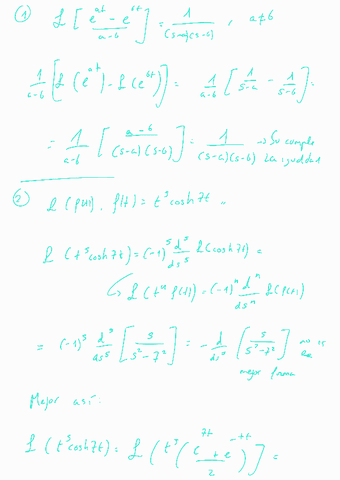 ① ℒ [ (e^{at} - e^{bt}) / (a-b) ] = 1 / ((s-a)(s-b)) , a≠b
1/(a-b) [ ℒ(e^{at}) - ℒ(e^{bt}) ] = 1/(a-b) [ 1/(s-a) - 1/(s-b) ] =
= 1/(a-b) [ (a-b) / ((s-a)(s-b)) ] = 1 / ((s-a)(s-b)) → Se cumple
la igualdad
② ℒ (f(t)), f(t) = t^5 cosh 7t
ℒ (t^5 cosh 7t) = (-1)^5 d^5/ds^5 ℒ(cosh 7t) =
↪ ℒ (t^n f(t)) = (-1)^n d^n/ds^n ℒ(f(t))
= (-1)^5 d^5/ds^5 [ s / (s^2 - 7^2) ] = - d/ds [ s / (s^2 - 7^2) ] no es
la
mejor forma
Mejor así:
ℒ (t^5 cosh 7t) = ℒ ( t^5 ( (e^{7t} + e^{-7t}) / 2 ) ) =